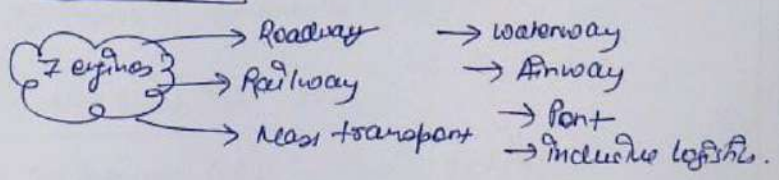 7 engines
→ Roadway
→ Railway
→ Mass transport
→ waterway
→ Airway
→ Port
→ inclusive logistics.